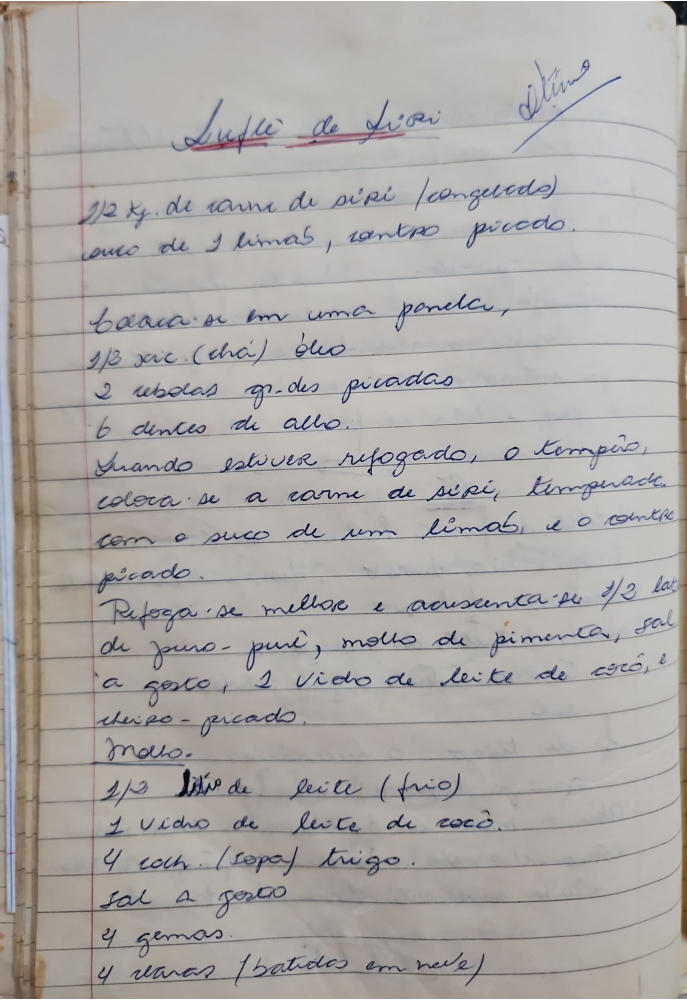 Suflê de Siri
ótimo
1/2 kg. de carne de siri (congelado)
suco de 1 limão, coentro picado.
Coloca-se em uma panela,
1/3 xic. (chá) óleo
2 cebolas gr-des picadas
6 dentes de alho.
Quando estiver refogado, o tempêro,
coloca-se a carne de siri, temperada
com o suco de um limão, e o coentro
picado.
Refoga-se melhor e acrescenta-se 1/2 lat
de puro-purê, molho de pimenta, sal
a gosto, 1 vidro de leite de cocô, e
cheiro-picado.
Molho.
1/2 litro de leite (frio)
1 vidro de leite de cocô.
4 colh. (sopa) trigo.
sal a gosto
4 gemas.
4 claras (batidas em neve)